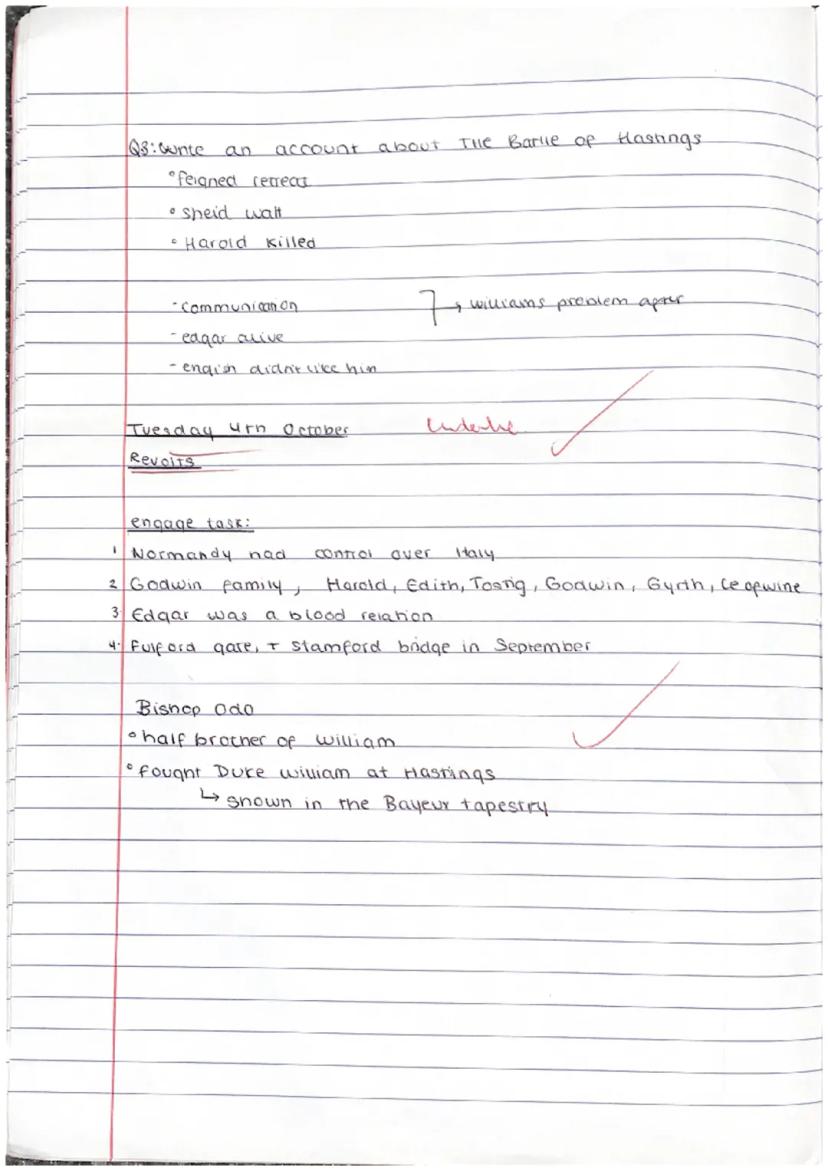 Q3: Write an account about The Battle of Hastings
° feigned retreat
° sheild wall
° Harold killed
- communication ] → williams problem after
- edgar alive
- english didn't like him
Tuesday 4th October Underline
Revolts
engage task:
1 Normandy had control over Italy
2 Godwin family, Harold, Edith, Tostig, Godwin, Gyrth, Leofwine
3 Edgar was a blood relation
4. Fulford gate, + Stamford bridge in September
Bishop Odo
° half brother of william
° fought Duke william at Hastings
↳ shown in the Bayeux tapestry